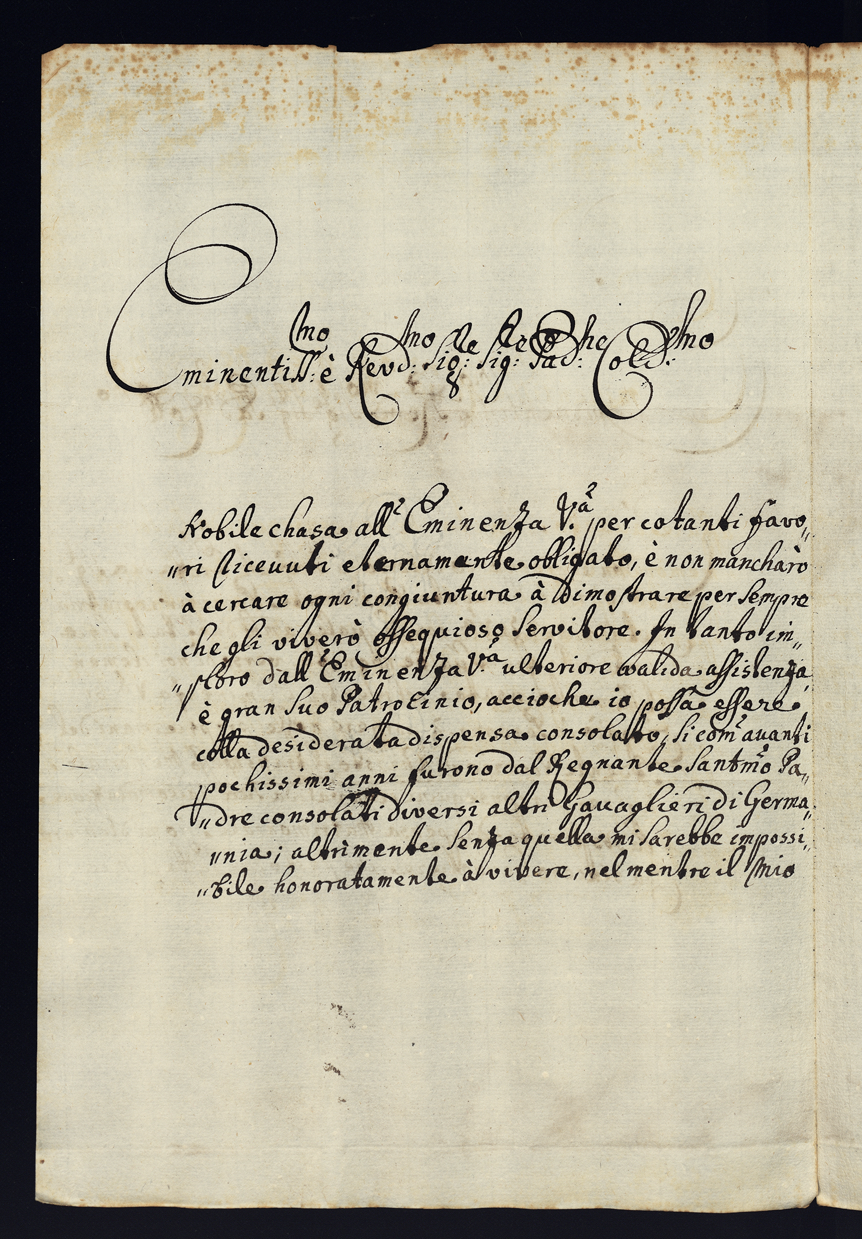 Eminentiss:mo è Revd:mo Sig:re Sig:re Pad:ne Cold:mo
Nobile chasa all' Eminenza V.a per cotanti favo„
„ri riceuuti eternamente obligato, è non mancharò
à cercare ogni congiuntura à dimostrare per sempre
che gli viverò ossequioso servitore. In tanto im„
„ploro dall' Eminenza V.a ulteriore valida assistenza
è gran suo Patrocinio, accioche io possa essere
colla desiderata dispensa consolato, si com' auanti
pochissimi anni furono dal Regnante Santmo Pa„
„dre consolati diversi altri Cauaglieri di Germa„
„nia; altrimente senza quella mi sarebbe impossi„
„bile honoratamente à vivere, nel mentre il mio